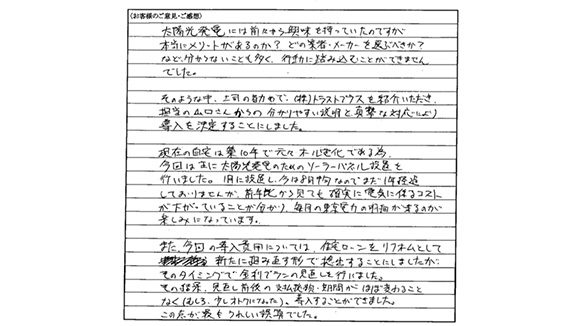 (お客様のご意見・ご感想)
太陽光発電には前々から興味を持っていたのですが
本当にメリットがあるのか？どの業者・メーカーを選ぶべきか？
など、分からないことも多く、行動に踏み込むことができません
でした。
そのような中、上司の協力で、(株)トラストプラスを紹介いただき、
担当の山口さんからの分かりやすい説明と真摯な対応により
導入を決定することにしました。
現在の自宅は築10年で元々オール電化である為、
今回は主に太陽光発電のためのソーラーパネル設置を
行いました。1月に設置し、今は8月中旬なのでまだ1年経過
しておりませんが、前年比から見ても確実に電気に係るコスト
が下がっていることが分かり、毎月の東京電力の明細が来るのが
楽しみになっています。
また、今回の導入費用については、住宅ローンをリフォームとして
新たに組み直す形で捻出することにしましたが
そのタイミングで金利プランの見直しも行いました。
その結果、見直し前後の支払総額・期間がほぼ変わること
なく(むしろ、少しオトクになった)、導入することができました。
この点が最もうれしい誤算でした。